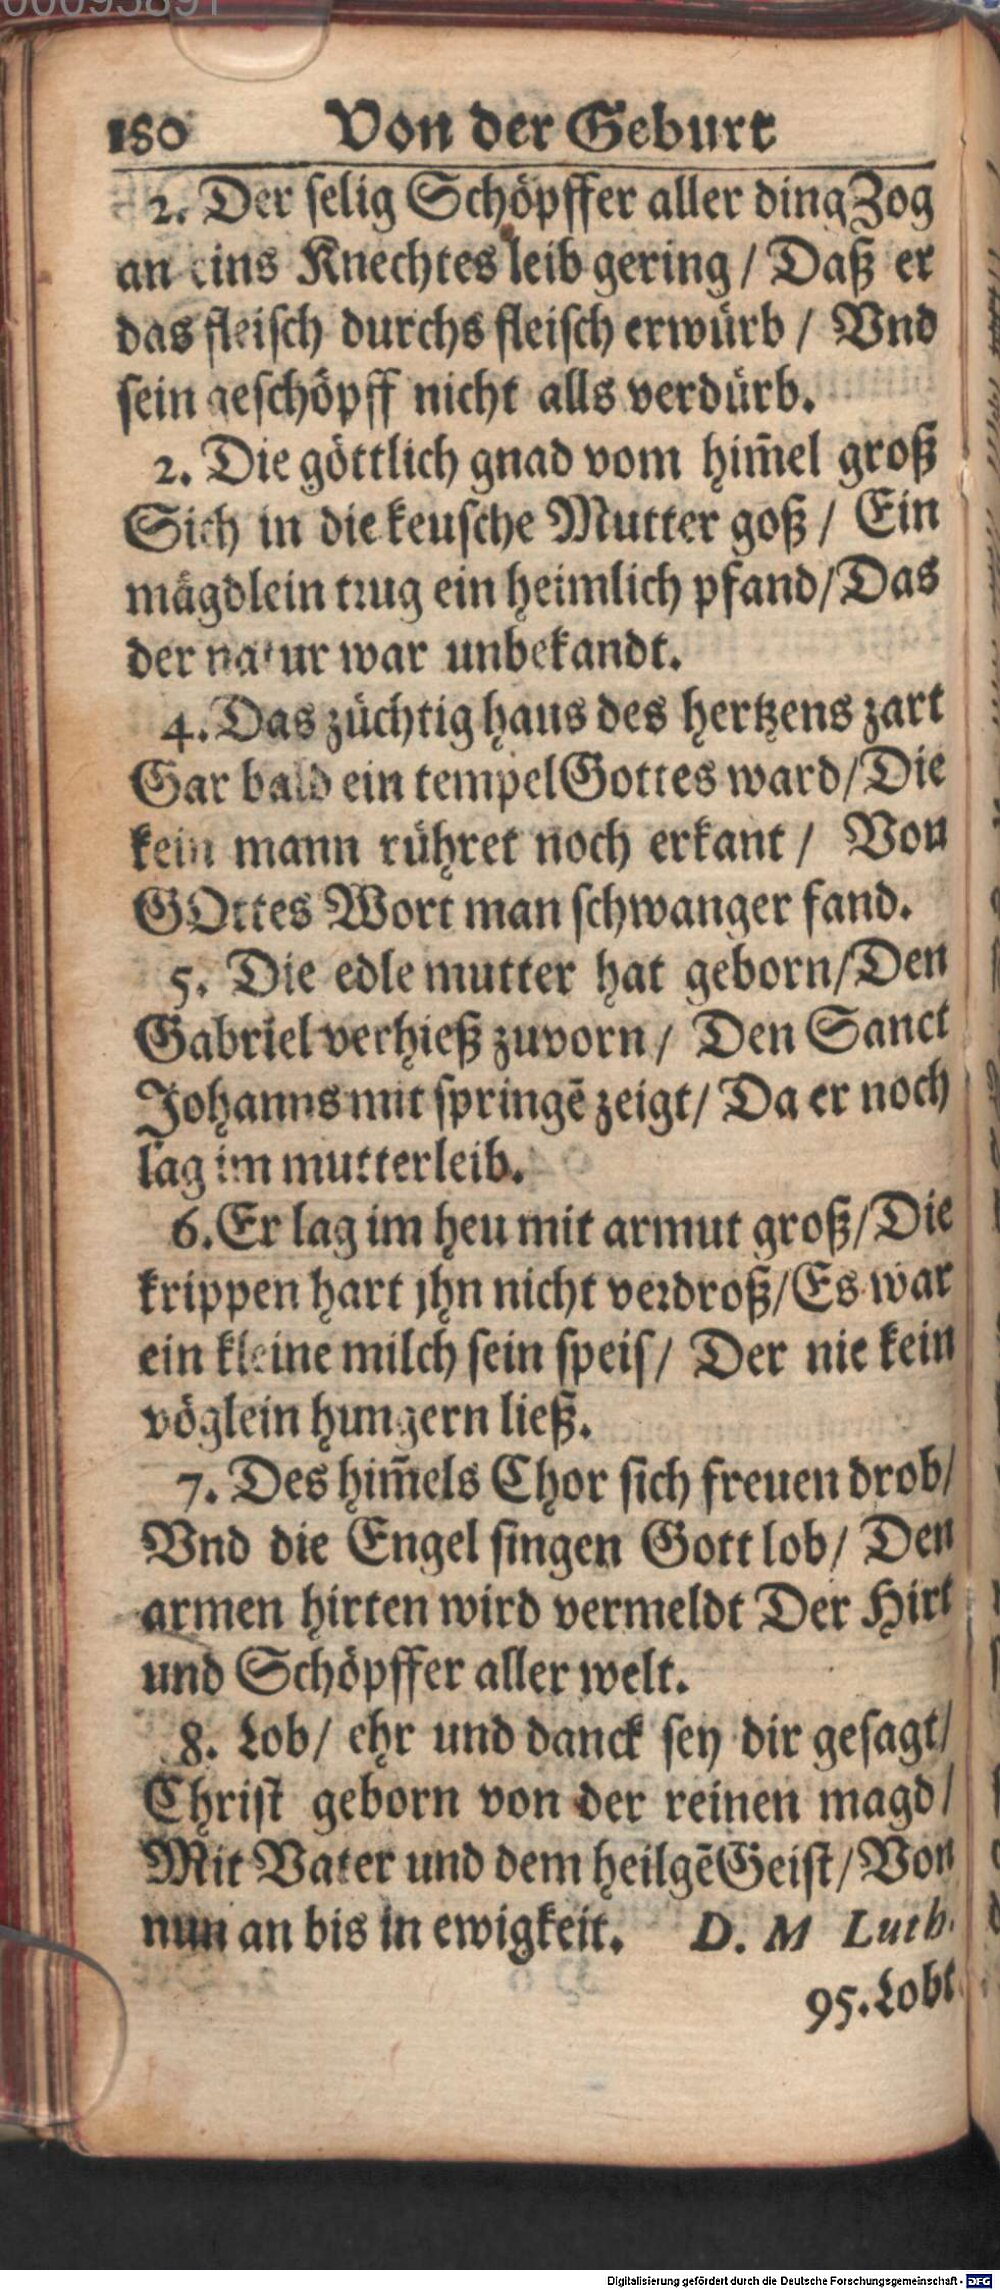 00095891
180 Von der Geburt
2. Der selig Schöpffer aller ding Zog
an eins Knechtes leib gering / Daß er
das fleisch durchs fleisch erwürb / Vnd
sein geschöpff nicht alls verdürb.
2. Die göttlich gnad vom him̄el groß
Sich in die keusche Mutter goß / Ein
mägdlein trug ein heimlich pfand/Das
der natur war unbekandt.
4. Das züchtig haus des hertzens zart
Gar bald ein tempel Gottes ward/Die
kein mann rühret noch erkant / Von
GOttes Wort man schwanger fand.
5. Die edle mutter hat geborn/Den
Gabriel verhieß zuvorn / Den Sanct
Johanns mit springē zeigt/ Da er noch
lag im mutterleib.
6. Er lag im heu mit armut groß/Die
krippen hart jhn nicht verdroß/Es war
ein kleine milch sein speis / Der nie kein
vöglein hungern ließ.
7. Des him̄els Chor sich freuen drob/
Vnd die Engel singen Gott lob / Den
armen hirten wird vermeldt Der Hirt
und Schöpffer aller welt.
8. Lob / ehr und danck sey dir gesagt/
Christ geborn von der reinen magd/
Mit Vater und dem heilgē Geist/Von
nun an bis in ewigkeit. D. M Luth.
95. Lobt
Digitalisierung gefördert durch die Deutsche Forschungsgemeinschaft - DFG